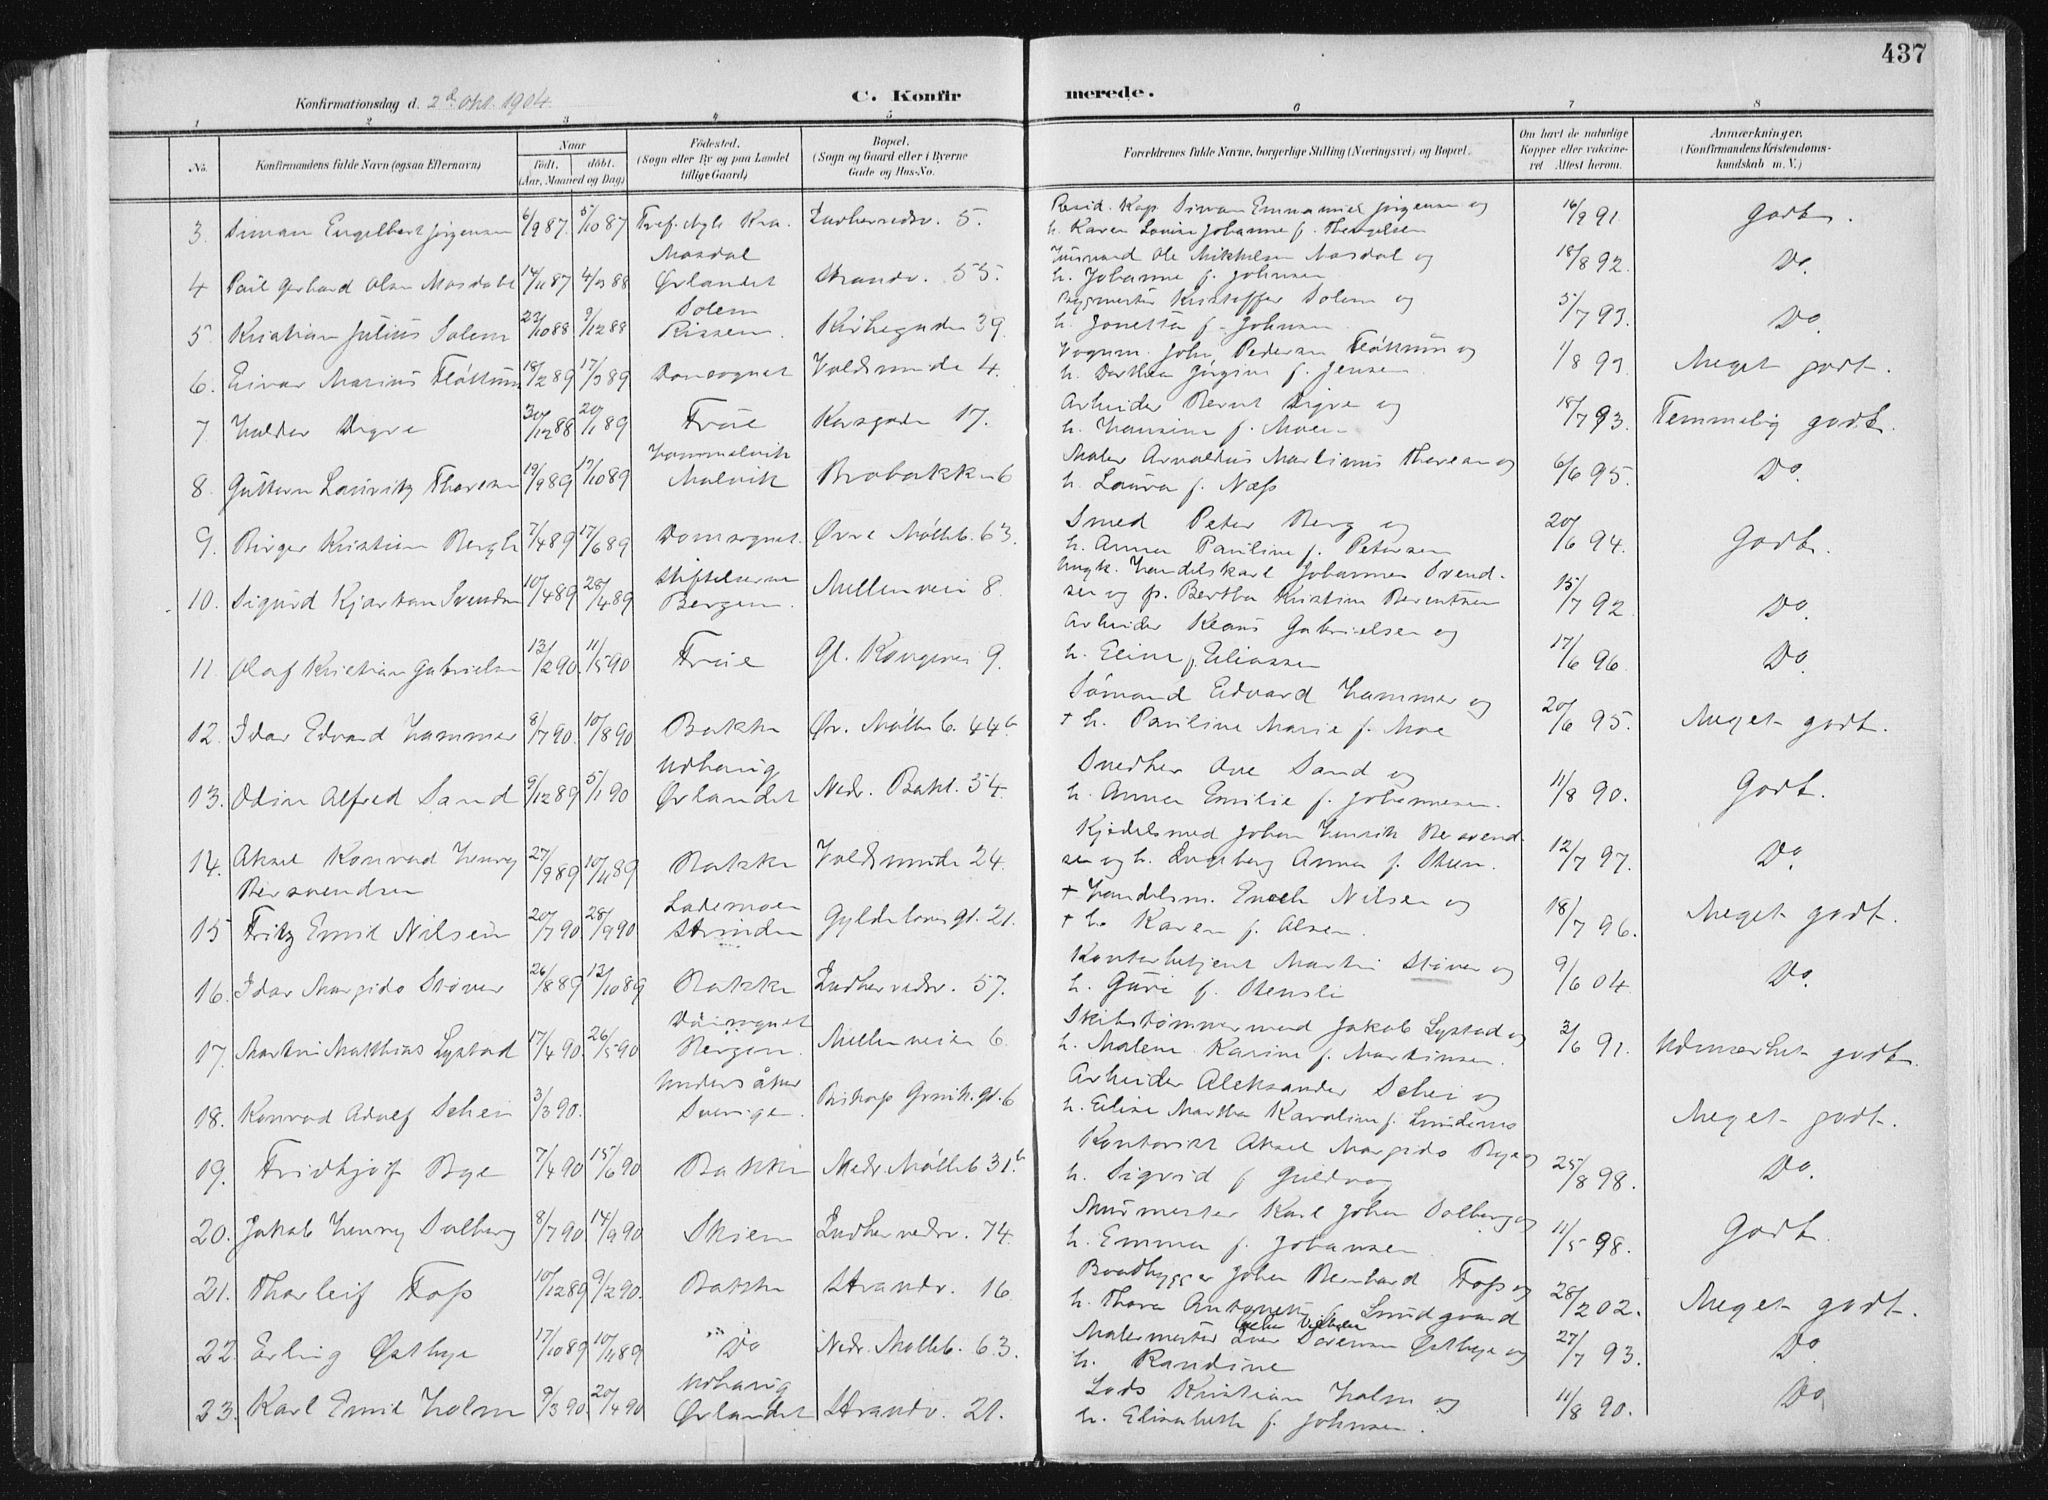 437
Konfirmationsdag d. 2d Okt. 1904.
C. Konfirmerede.
1 2 3 4 5 6 7 8
No. Konfirmandens fulde Navn (ogsaa Efternavn)
Naar født. døbt. (Aar, Maaned og Dag)
Fødested. (Sogn eller By og paa Landet tillige Gaard)
Bopæl. (Sogn og Gaard eller i Byerne Gade og Hus-No.
Forældrenes fulde Navne, borgerlige Stilling (Næringsvei) og Bopæl.
Om havt de naturlige Kopper eller vakcineret Attest herom.
Anmærkninger. (Konfirmandens Kristendomskundskab m. V.)
3. Simon Engelbert Jørgensen 6/9 87. 5/10 87 Indherredsv. 5. Resid. Kap. Simon Emmanuel Jørgensen og
h. Karen Louise Johanne f. Thengelsen 16/9 91. Godt.
4 Paul Gerhard Olsen Mosdal 14/11 87 4/3 88 Mosdal Ørlandet Strandv. 55. Husmand Ole Mikkelsen Mosdal og
h. Johanne f. Johnsen 18/8 92. Do.
5. Kristian Julius Solem 23/10 88 9/12 88 Solem Rissen. Kirkegaden 39. Bygmester Kristoffer Solem og
h. Jonetta f. Johnsen 5/7 93. Do.
6. Einar Marius Fløttum 18/2 89 17/3 89 Domsognet Voldsminde 4. Vognm. John Pedersen Fløttum og
h. Dorthea Jørgine f. Jensen 1/8 93 Meget godt.
7 Haldor Digre 30/12 88 20/1 89 Frue Korsgaden 17. Arbeider Bernt Digre og
h. Hansine f. Moen 18/7 93. Temmelig godt.
8. Guttorm Lauritz Thoresen 19/9 89 17/10 89 Hommelvik Malvik Brobakken 6 Maler Arnoldus Martinus Thoresen og
h. Laura f. Næss 6/6 95. Do.
9. Birger Kristian Bergh 7/4 89 17/6 89 Domsognet. Øvre Mølleb. 63. Smed Peter Berg og
h. Anna Pauline f. Petersen 20/6 94. Godt.
10. Sigurd Kjartan Svendsen 10/4 89 28/4 89 Stiftelserne Bergen. Mellemveien 8. Ungk. Handelskarl Johannes Svendsen
og p. Bertha Kristine Berentsen 15/7 92 Do.
11. Olaf Kristian Gabrielsen 13/2 90. 11/5 90 Frue Gl. Kongevei 9. Arbeider Klaus Gabrielsen og
h. Eline f. Eliassen 17/6 96. Do.
12. Idar Edvard Hammer 8/7 90. 10/8 90 Bakke Øv. Mølleb. 44b Sømand Edvard Hammer og
+ h. Pauline Marie f. Moe 20/6 95. Meget godt.
13. Odin Alfred Sand 9/12 89 5/1 90 Udhaug Ørlandet Nedr. Bakl. 54. Snedker Ove Sand og
h. Anna Emilie f. Johannesen. 11/8 90. Godt.
14. Aksel Konrad Henry Bersvendsen 27/9 89 10/11 89 Bakke Voldsminde 24. Kjedelsmed Johan Henrik Bersvendsen
og h. Ingeborg Anna f. Steen. 12/7 97. Do.
15 Fritz Emil Nilsen 20/7 90. 28/9 90 Lademoen Strinden Gyldenløves gt. 21. + Handelsm. Enoch Nilsen og
+ h. Karen f. Olsen. 18/7 96. Meget godt.
16. Idar Margido Støver 26/8 89 13/10 89 Bakke Indherredsv. 57. Kontorbetjent Martin Støver og
h. Guri f. Stensli 9/6 04. Do.
17. Martin Matthias Lystad 17/4 90. 26/5 90 Domsognet Bergen. Mellemveien 6. Skibstømmermand Jakob Lystad og
h. Malene Karine f. Martinsen. 3/6 91. Udmerket godt.
18. Konrad Adolf Schei 3/3 90. Undersåker Sverige. Biskop Grimk. gt. 6 Arbeider Aleksander Schei og
h. Elise Martha Karoline f. Meget godt.
19. Fridthjof Bye 7/4 90 15/6 90 Bakke Nedr. Mølleb 31b Kontorist Aksel Margido Bye og
h. Sigrid f. Guldvog 25/8 98. Do.
20. Jakob Henry Solberg 8/7 90 14/9 90 Skien Indherredsv. 74. Murmester Karl Johan Solberg og
h. Emma f. Johansen 11/5 98. Godt.
21. Thorleif Foss 10/12 89 9/2 90. Bakke Strandv. 16 Baadbygger Johan Bernhard Foss og
h. Thora Antonette f. Smidgaard 28/2 02. Meget godt.
22. Erling Østbye 17/10 89 10/11 89 Do Nedr. Mølleb. 63. Malermester Iver Sørensen Østbye og
h. Randine 27/7 93. Do
23. Karl Emil Holm 9/3 90. 20/4 90 Udhaug Ørlandet Strandv. 21. Lods Kristian Holm og
h. Elisabeth f. Johnsen. 11/8 90. Do